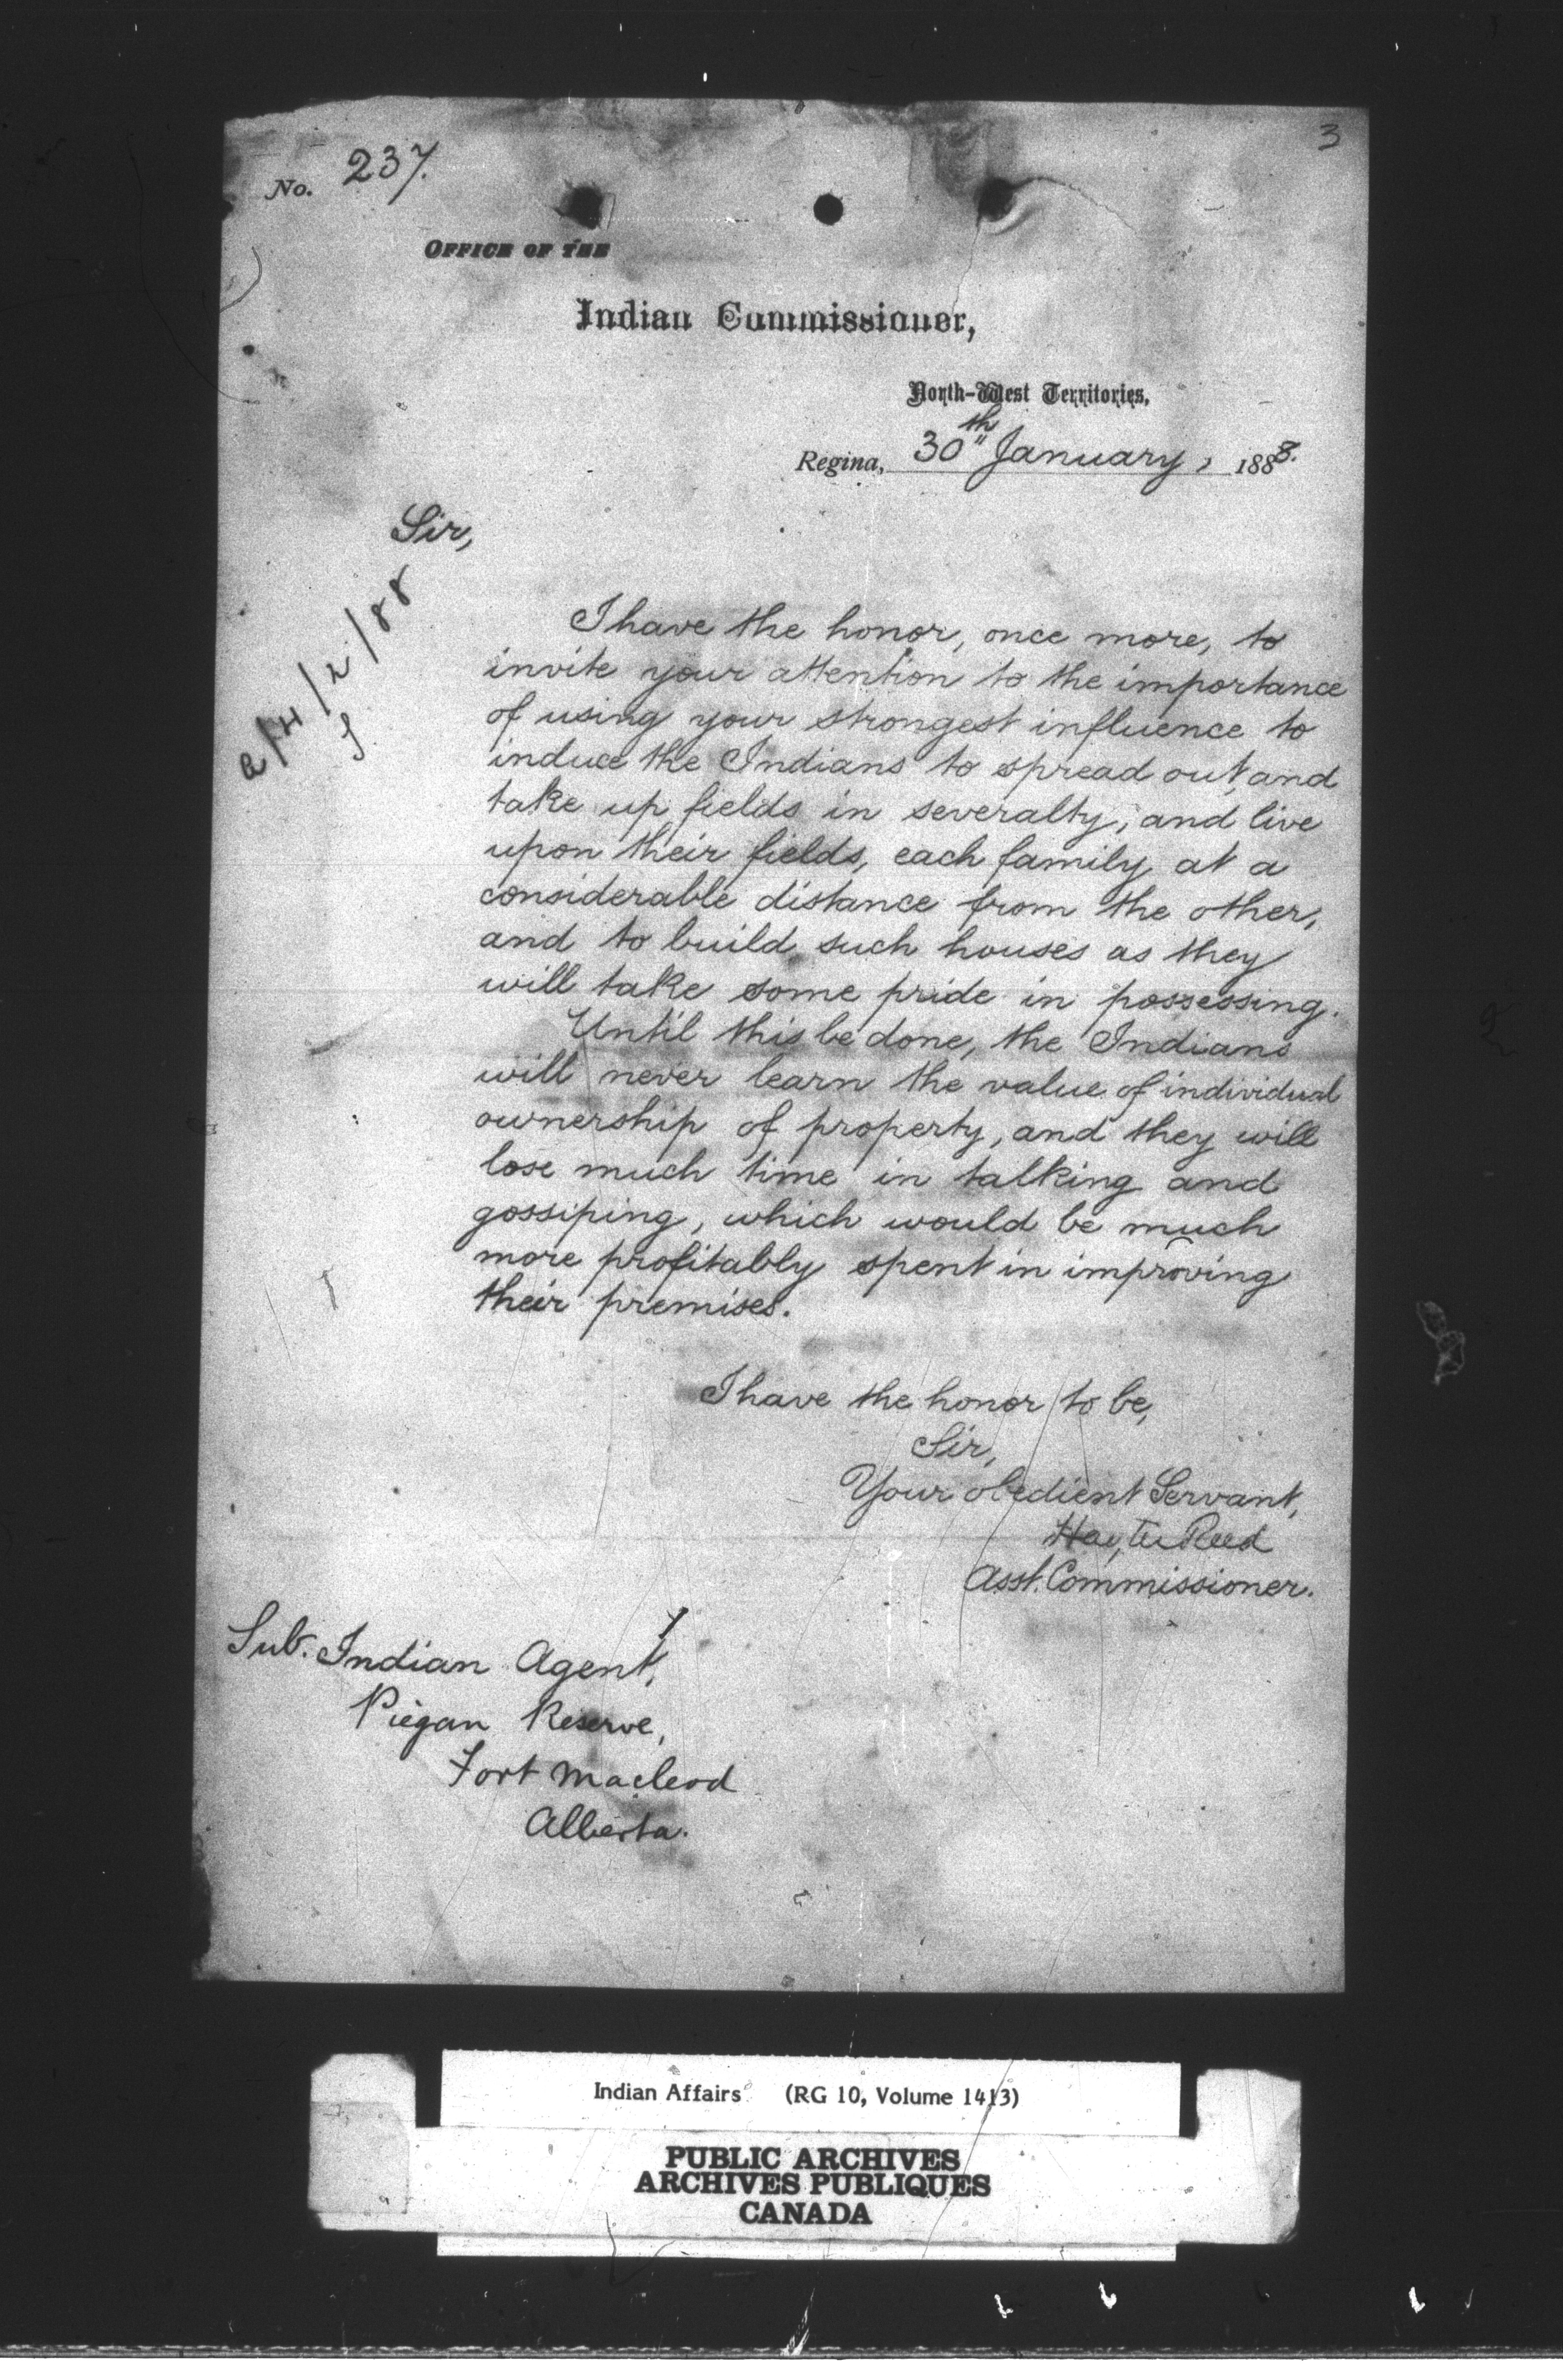 3
No. 237.
OFFICE OF THE
Indian Commissioner,
North-West Territories,
Regina, 30th January, 1888.
Sir,
I have the honor, once more, to
invite your attention to the importance
of using your strongest influence to
induce the Indians to spread out, and
take up fields in severalty, and live
upon their fields, each family at a
considerable distance from the other,
and to build such houses as they
will take some pride in possessing.
Until this be done, the Indians
will never learn the value of individual
ownership of property, and they will
lose much time in talking and
gossiping, which would be much
more profitably spent in improving
their premises.
I have the honor to be,
Sir,
Your obedient Servant,
Hayter Reed
Asst. Commissioner.
Sub. Indian Agent,
Piegan Reserve,
Fort Macleod
Alberta.
Indian Affairs (RG 10, Volume 1413)
PUBLIC ARCHIVES
ARCHIVES PUBLIQUES
CANADA